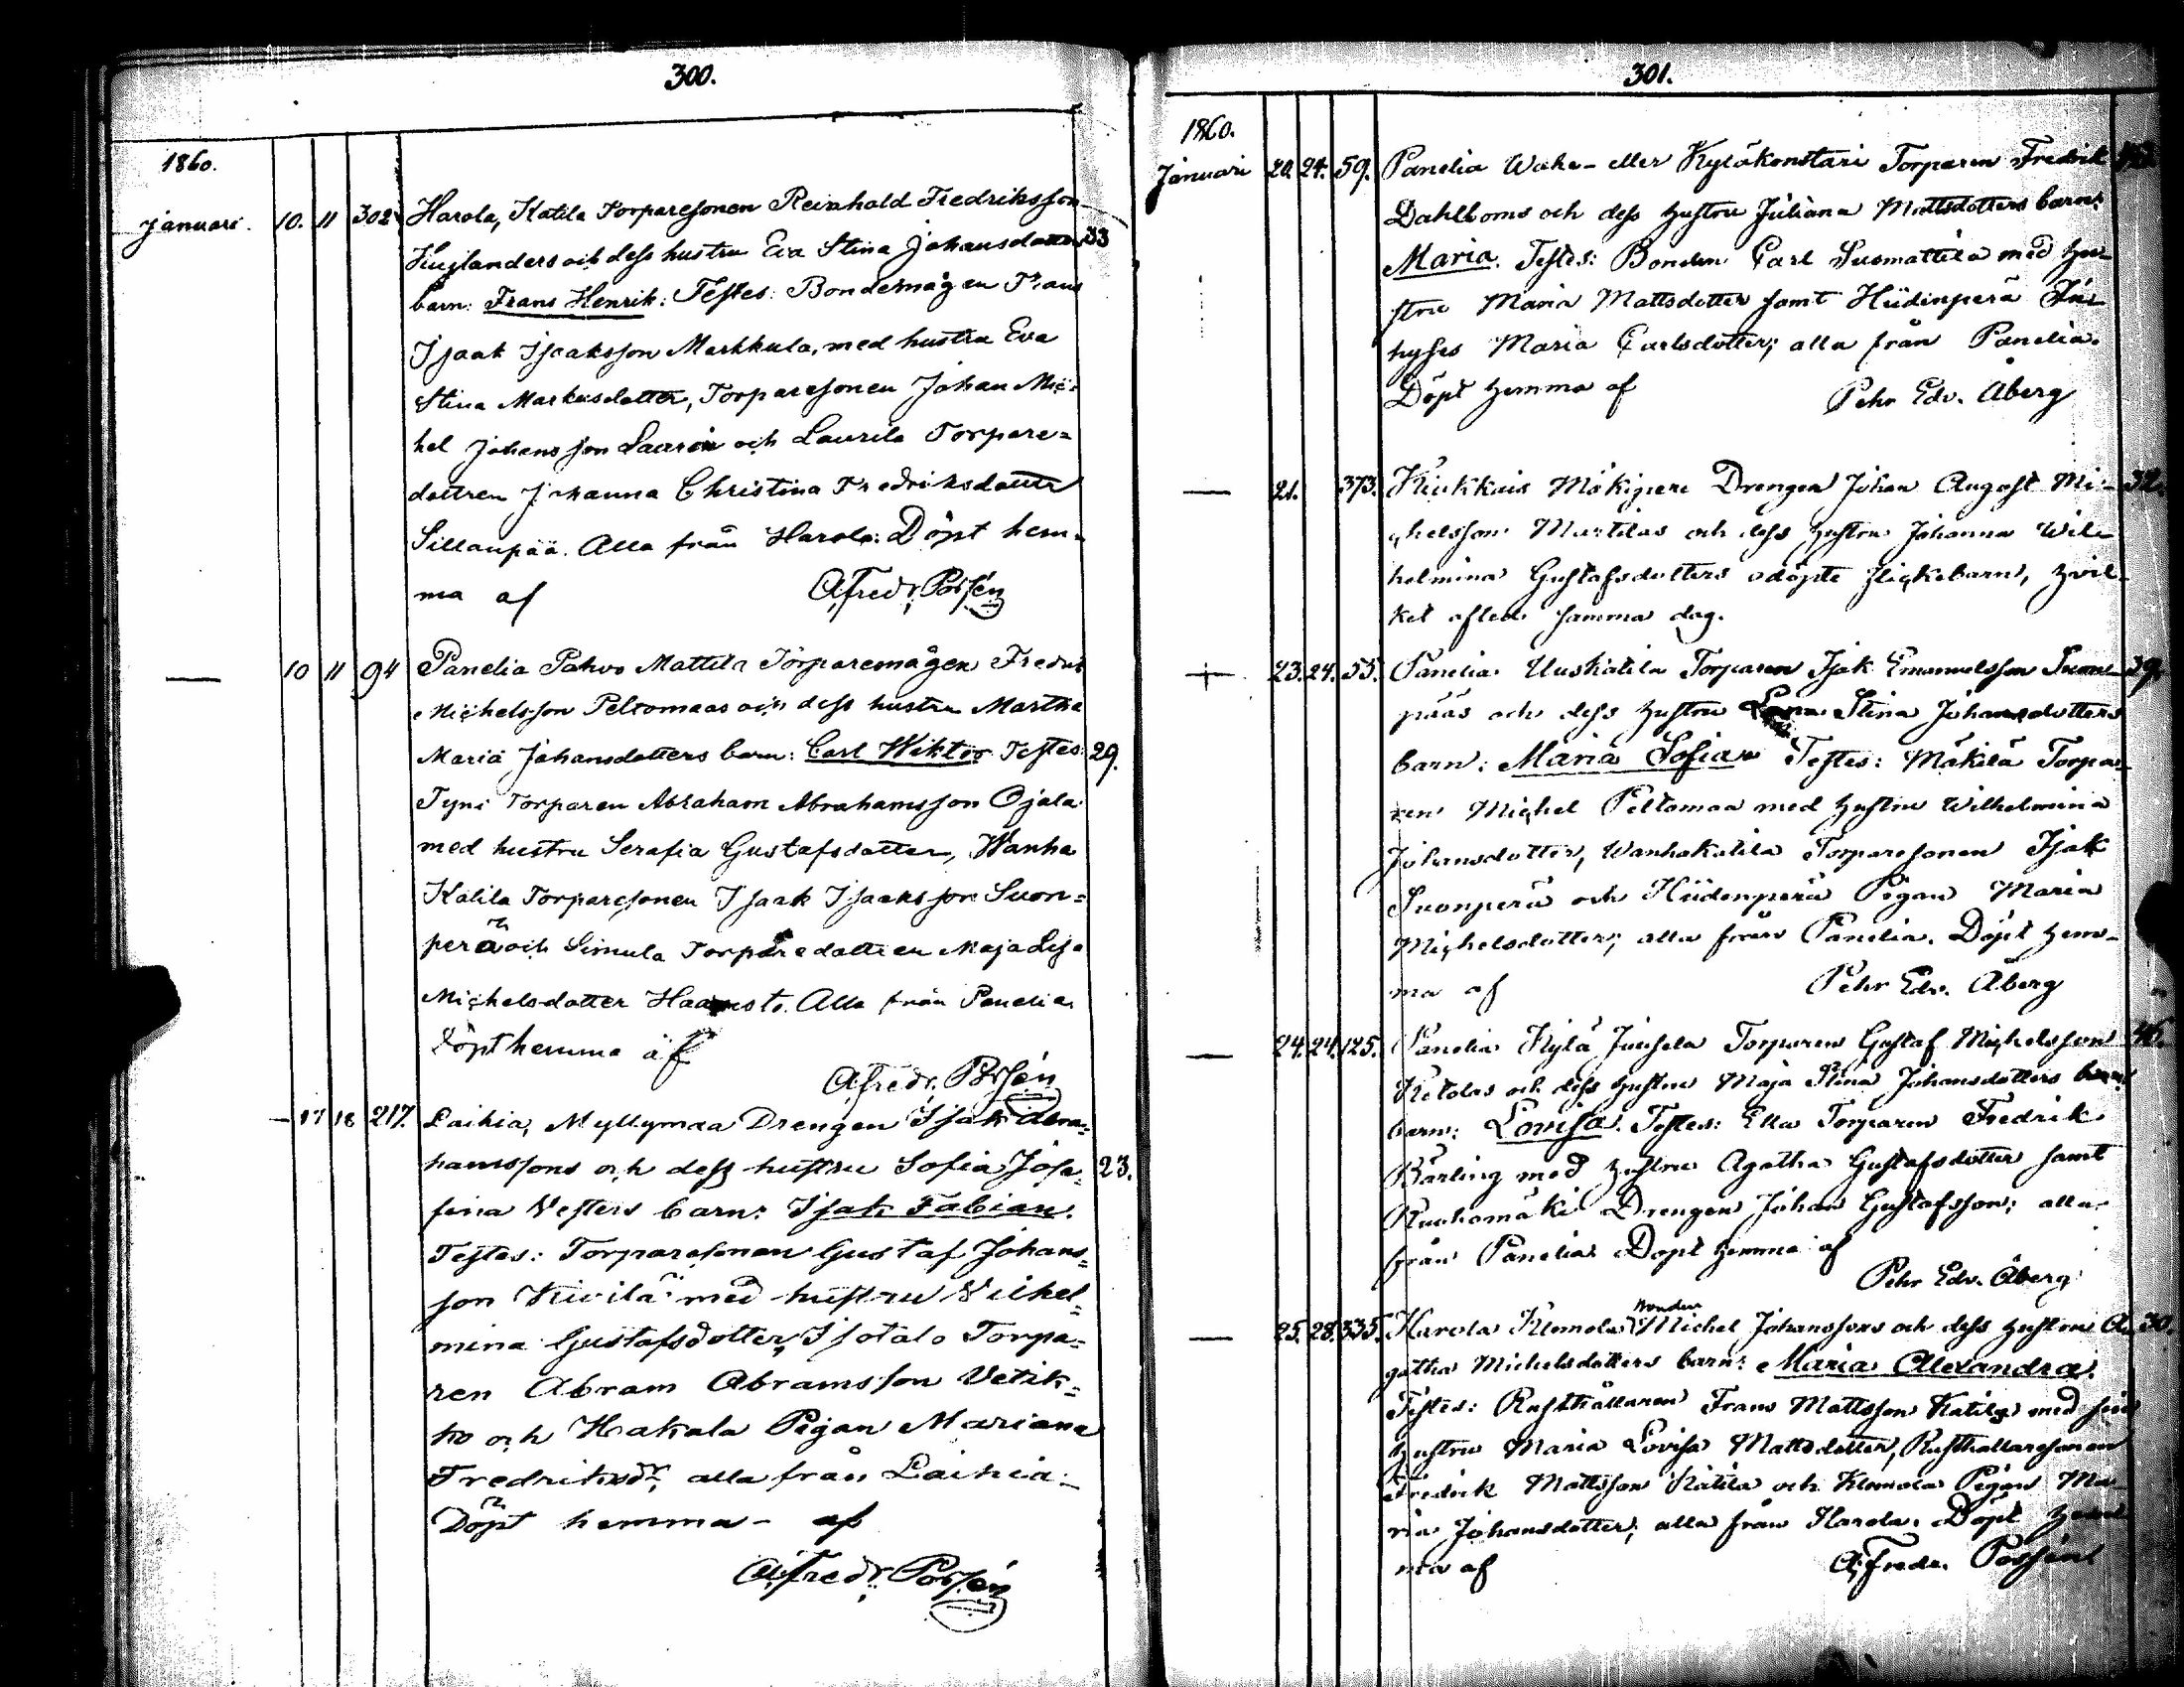 300.
1860.
Januari. 10. 11 302 Harola, Katila Torparesonen Reinhold Fredriksson
Huglanders och dess hustru Eva Stina Johansdotters 33
barn: Frans Henrik: Testes: Bondemågen Frans
Isaak Isaaksson Markkula, med hustru Eva
Stina Markusdotter, Torparesonen Johan Mic=
hel Johansson Saari och Laurila Torpare=
dottren Johanna Christina Fredriksdotter
Sillanpää. Alla från Harola: Döpt hem=
ma af Alfred Porsén
— 10 11 94 Panelia Pahvo Mattila Torparemågen Fredrik
Michelsson Peltomaas och dess hustru Martha
Maria Johansdotters barn: Carl Wiktor Testes: 29.
Tyni Torparen Abraham Abrahamsson Ojala
med hustru Serafia Gustafsdotter, Wanha
Katila Torparesonen Isaak Isaaksson Suon=
perä och Simula Torparedottren Maja Lisa
Michelsdotter Haavisto. Alla från Panelia.
Döpt hemma af
Alfred Porsén
— 17 18 217. Laihia, Myllymaa Drengen Isak Abra=
hamssons och dess hustru Sofia Josa= 23.
fina Vesters barn: Isak Fabian.
Testes: Torparesonen Gustaf Johans=
son Kivilä med hustru Vilhel=
mina Gustafsdotter, Isotalo Torpa=
ren Abram Abramsson Vetik=
ko och Hakala Pigan Mariana
Fredriksdr; alla från Laihia.
Döpt hemma af
Alfred Porsén
301.
1860.
Januari 20. 24. 59. Panelia Waha- eller Kyläkonstari Torparen Fredrik
Dahlboms och dess hustru Juliana Mattsdotters barn:
Maria. Testes: Bonden Carl Suomattila med hu-
stru Maria Mattsdotter samt Hiidenperä In-
hyses Maria Carlsdotter; alla från Panelia.
Döpt hemma af Pehr Edv. Åberg
— 21. 373. Kiukkais Mäkiperi Drengen Johan August Mi- 32.
chelsson Martilas och dess hustru Johanna Wil-
helmina Gustafsdotters odöpte flickebarn, hvil-
ket afled samma dag.
+ 23. 24. 55. Panelia Uuskatila Torparen Isak Emanuelsson Suon- 39.
pääs och dess hustru Stina Johansdotters
barn: Maria Sofia Testes: Mäkilä Torpa-
ren Michel Peltomaa med hustru Wilhelmina
Johansdotter, Wanhakatila Torparesonen Isak
Suonperä och Hiidenperä Pigan Maria
Michelsdotter; alla från Panelia. Döpt hem-
ma af Pehr Edv. Åberg
— 24. 24. 125. Panelia Kylä Juusela Torparen Gustaf Michelsson
Ketolas och dess hustru Maja Stina Johansdotters
barn: Lovisa. Testes: Ella Torparen Fredrik
Bärling med hustru Agatha Gustafsdotter samt
Ruohomäki Drengen Johan Gustafsson; alla
från Panelia Döpt hemma af
Pehr Edv. Åberg
— 25. 28. 335. Harola Klemola Bonden Michel Johanssons och dess hustru A- 30.
gatha Michelsdotters barn: Maria Alexandra.
Testes: Rusthållaren Frans Mattsson Katila med sin
hustru Maria Lovisa Mattsdotter, Rusthållaresonen
Fredrik Mattsson Katila och Klemola Pigan Ma-
ria Johansdotter; alla från Harola. Döpt hem-
ma af Alfred Porsén